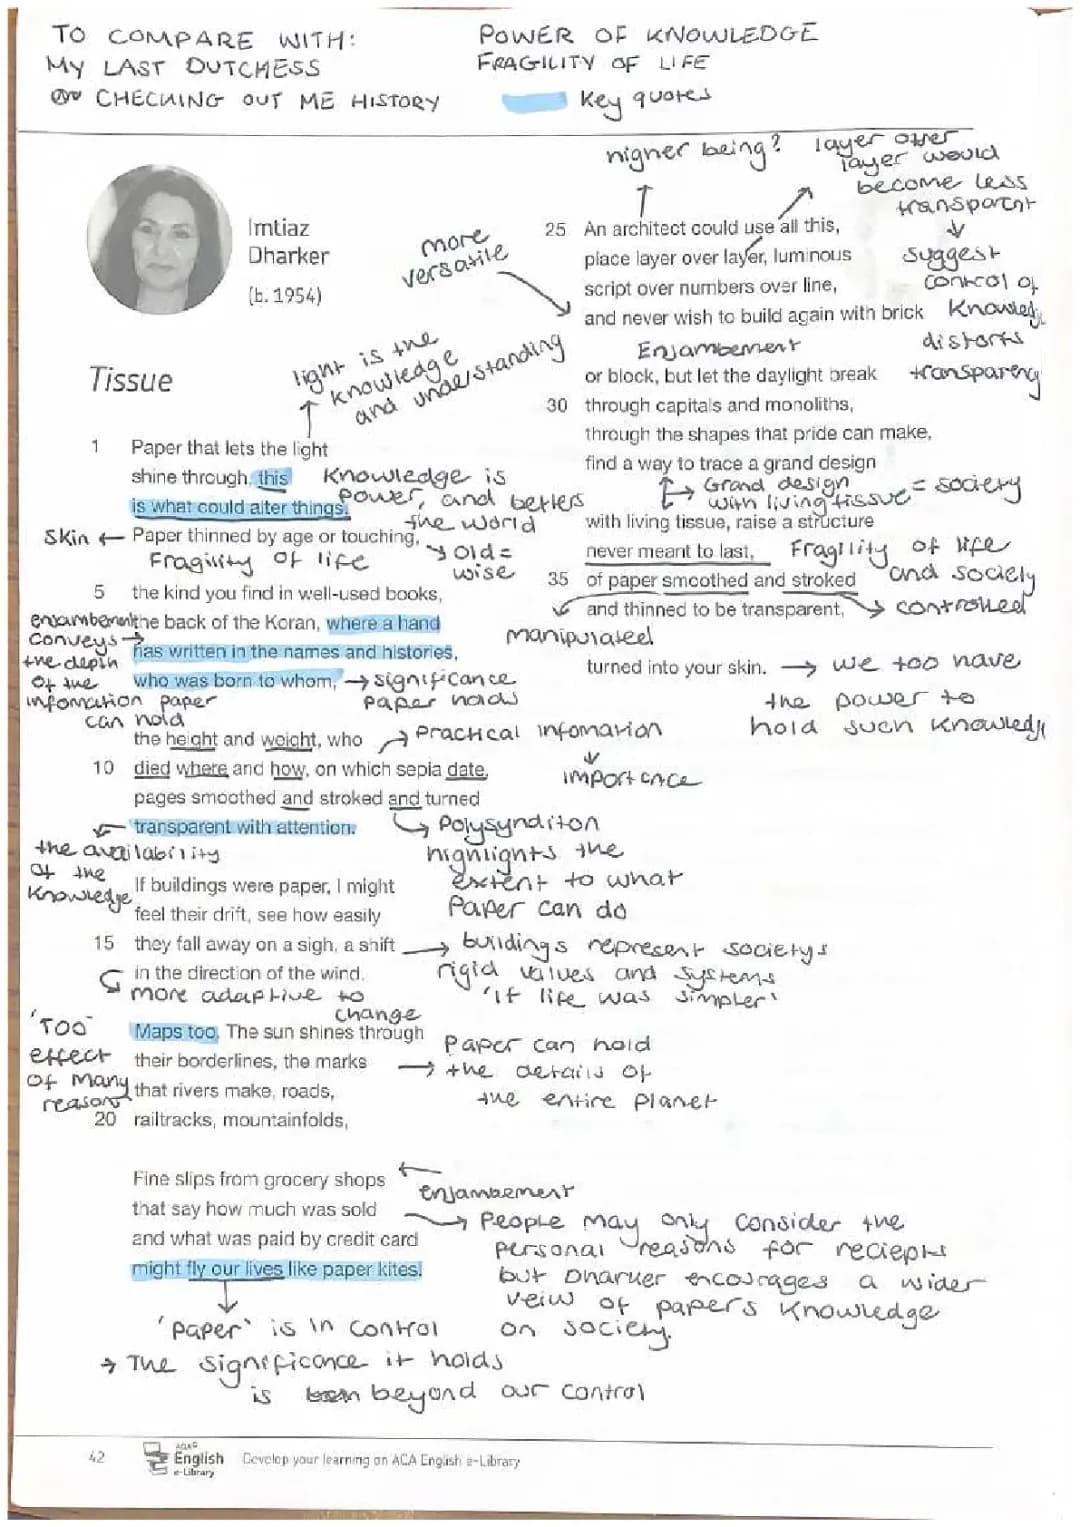 TO COMPARE WITH:
MY LAST DUTCHESS
CHECKING OUT ME HISTORY
POWER OF KNOWLEDGE
FRAGILITY OF LIFE
Key quotes
Imtiaz
Dharker
(b. 1954)
Tissue
light is the
knowledge
and understanding
1 Paper that lets the light
shine through, this
is what could alter things.
Knowledge is
power, and betters
the world
Paper thinned by age or touching,
Skin
Fragility of life
old =
wise
5 the kind you find in well-used books,
the back of the Koran, where a hand
has written in the names and histories,
who was born to whom,
enjambement
conveys
the depth
of the
infomation paper
can hold
significance
paper holds
the height and weight, who
10 died where and how, on which sepia date,
pages smoothed and stroked and turned
transparent with attention.
Practical infomation
importance
Polysynditon
highlights the
extent to what
Paper can do
the availability
of the
Knowledge
If buildings were paper, I might
feel their drift, see how easily
15 they fall away on a sigh, a shift
in the direction of the wind.
more adaptive to
change
buildings represent societys
rigid values and systems
'if life was simpler'
Maps too. The sun shines through
their borderlines, the marks
that rivers make, roads,
20 railtracks, mountainfolds,
'TOO'
effect
of many
reasons
Paper can hold
the details of
the entire planet
Fine slips from grocery shops
that say how much was sold
and what was paid by credit card
might fly our lives like paper kites.
enjambement
People may only consider the
personal reasons for reciepts
but Dharker encourages a wider
veiw of papers Knowledge
on society.
'paper' is in control
The significance it holds
is beyond our control
higher being?
layer over
layer would
become less
transparent
suggest
control of
Knowledge
distorts
transparency
more
versatile
25 An architect could use all this,
place layer over layer, luminous
script over numbers over line,
and never wish to build again with brick
Enjambement
or block, but let the daylight break
30 through capitals and monoliths,
through the shapes that pride can make,
find a way to trace a grand design
Grand design
with living tissue = society
with living tissue, raise a structure
never meant to last,
Fragility of life
and society
35 of paper smoothed and stroked
and thinned to be transparent,
controlled
manipulated
turned into your skin.
we too have
the power to
hold such knowledge
42
AQA
English
e-Library
Develop your learning on ACA English e-Library